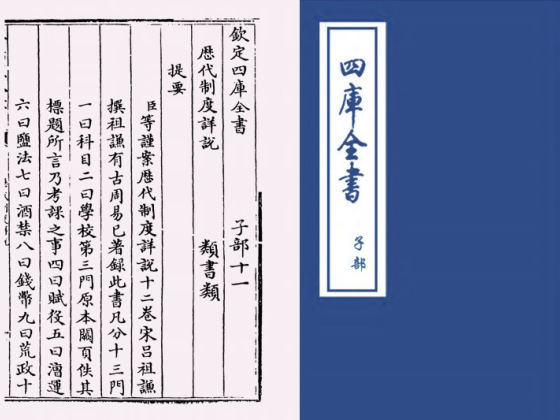 欽定四庫全書
子部十一
歴代制度詳說
類書類
提要
臣等謹案歴代制度詳說十二卷宋吕祖謙
撰祖謙有古周易已著録此書凡分十三門
一曰科目二曰學校第三門原本闕頁佚其
標題所言乃考課之事四曰賦役五曰漕運
六曰鹽法七曰酒禁八曰錢幣九曰荒政十
四庫全書
子部